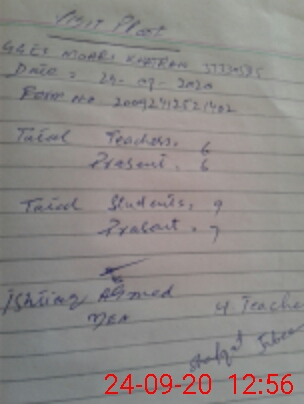 Visit Proof
GGES MOARI KHATRAN
Date: 24-09-2020
Form No 20092412521402
Total Teachers, 6
Present, 6
Total Students, 9
Present, 7
Ishtiaq Ahmed
MEA
4. Teacher
24-09-20 12:56